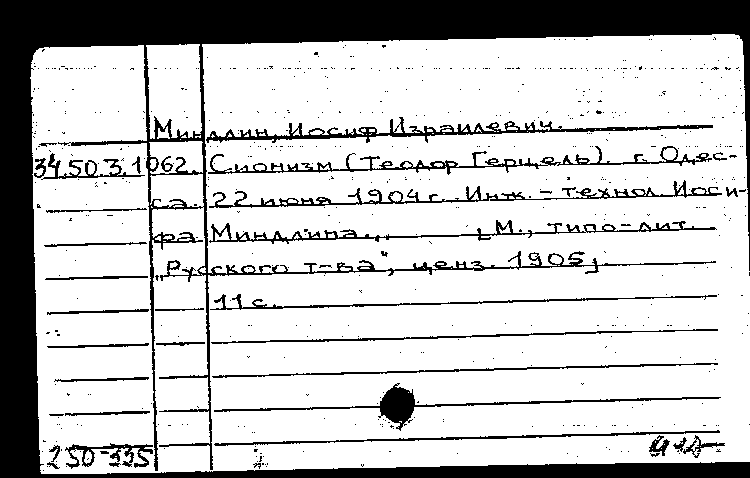 Миндлин, Иосиф Израилевич.
34.50.3.1062. Сионизм (Теодор Герцель). г. Одес-
са. 22 июня 1904 г. Инж.-технол Иоси-
фа Миндлина... [М., типо-лит.
„Русского т-ва", ценз. 1905]
11 с.
250-335